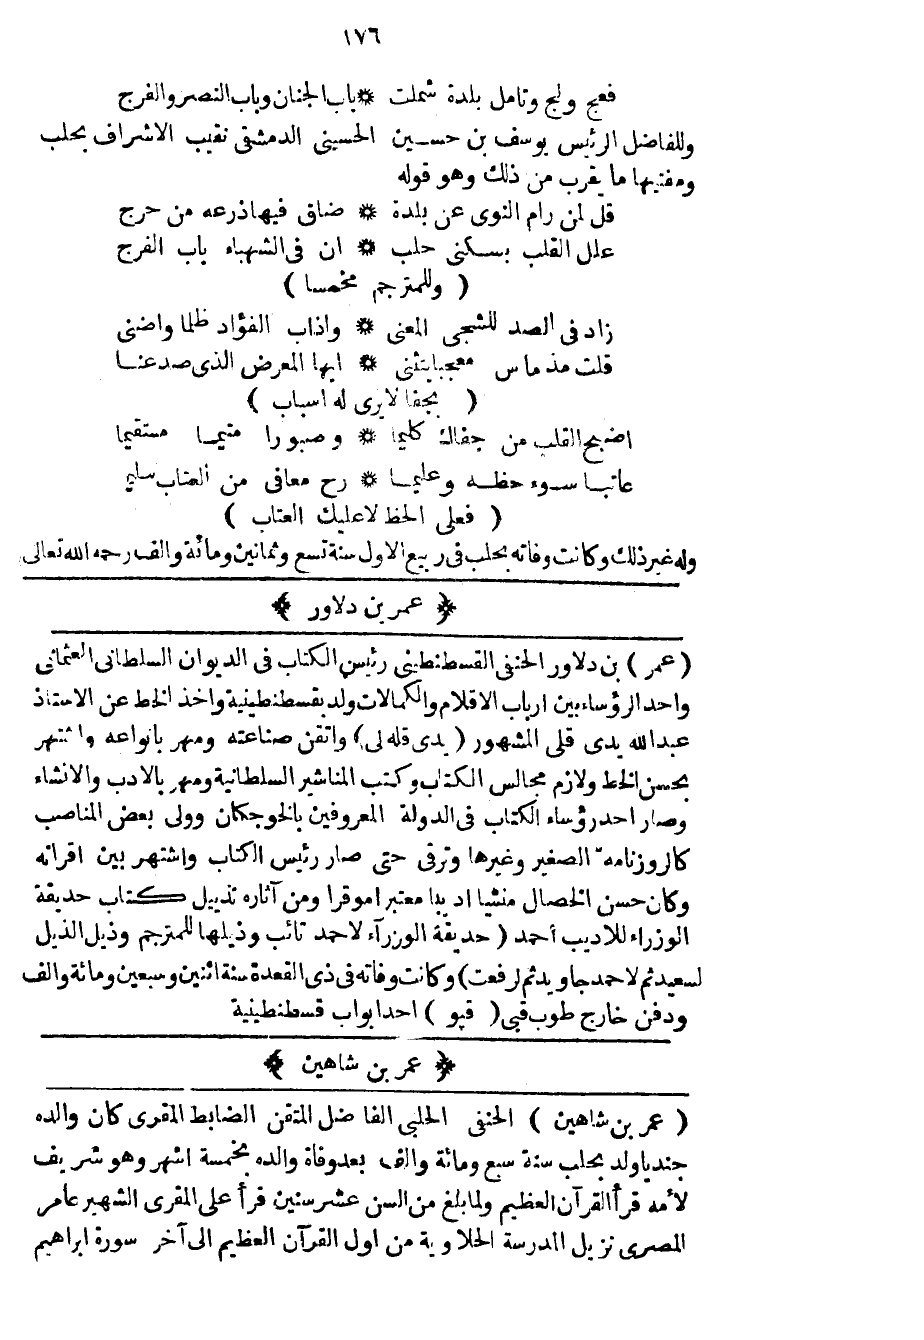 ١٧٦
فعج ولج وتأمل بلدة شملت * باب الجنان وباب النصر والفرج
وللفاضل الرئيس يوسف بن حسين الحسيني الدمشقي نقيب الاشراف بحلب
ومفتيها ما يقرب من ذلك وهو قوله
قل لمن رام النوى عن بلدة * ضاق فيها ذرعه من حرج
علل القلب بسكنى حلب * ان فى الشهباء باب الفرج
( وللمترجم مخمسا )
زاد فى الصد للشجى المعنى * واذاب الفؤاد ظلما واضنى
قلت مذ ماس معجبا يتثنى * ايها المعرض الذى صد عنا
( بجفا لا يرى له اسباب )
اضبح القلب من جفاك كليما * وصبورا متيما مستقيما
عاتبا سوء حظه وعليما * رح معافى من العتاب سليم
( فعلى الحظ لا عليك العتاب )
وله غير ذلك وكانت وفاته بحلب فى ربيع الاول سنة تسع وثمانين ومائة والف رحمه الله تعالى
﴿ عمر بن دلاور ﴾
( عمر ) بن دلاور الحنفى القسطنطينى رئيس الكتاب فى الديوان السلطانى العثمانى
واحد الرؤساء بين ارباب الاقلام والكمالات ولد بقسطنطينية واخذ الخط عن الاستاذ
عبدالله يدى قلى المشهور ( يدى قله لى ) واتقن صناعته ومهر بانواعه واشتهر
بحسن الخط ولازم مجالس الكتاب وكتب المناشير السلطانية ومهر بالادب والانشاء
وصار احد رؤساء الكتاب فى الدولة المعروفين بالخوجكان وولى بعض المناصب
كالروزنامه ٔ الصغير وغيرها وترقى حتى صار رئيس الكتاب واشتهر بين اقرانه
وكان حسن الخصال منشيا اديبا معتبرا موقرا ومن آثاره تذييل كتاب حديقة
الوزراء للاديب أحمد ( حديقة الوزرآء لاحمد تائب وذيلها للمترجم وذيل الذيل
لسعيد ثم لاحمد جاويد ثم لرفعت ) وكانت وفاته فى ذى القعدة سنة اثنين وسبعين ومائة والف
ودفن خارج طوب قبى ( قپو ) احد ابواب قسطنطينية
﴿ عمر بن شاهين ﴾
( عمر بن شاهين ) الحنفى الحلبى الفاضل المتقن الضابط المقرى كان والده
جنديا ولد بحلب سنة سبع ومائة والف بعد وفاة والده بخمسة اشهر وهو شريف
لأمه قرأ القرآن العظيم ولما بلغ من السن عشر سنين قرأ على المقرى الشهير عامر
المصرى نزيل المدرسة الحلاوية من اول القرآن العظيم الى آخر سورة ابراهيم